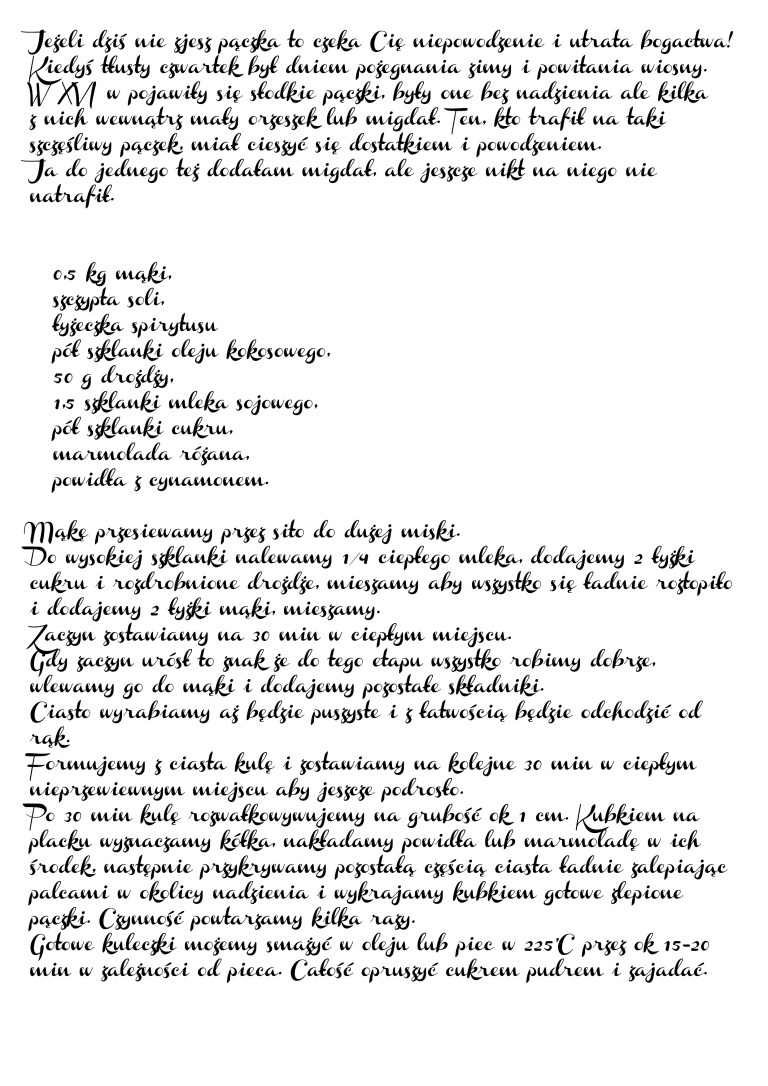 Jeżeli dziś nie zjesz pączka to czeka Cię niepowodzenie i utrata bogactwa!
Kiedyś tłusty czwartek był dniem pożegnania zimy i powitania wiosny.
W XVI w pojawiły się słodkie pączki, były one bez nadzienia ale kilka
z nich wewnątrz mały orzeszek lub migdał. Ten, kto trafił na taki
szczęśliwy pączek, miał cieszyć się dostatkiem i powodzeniem.
Ja do jednego też dodałam migdał, ale jeszcze nikt na niego nie
natrafił.
0,5 kg mąki,
szczypta soli,
łyżeczka spirytusu
pół szklanki oleju kokosowego,
50 g drożdży,
1,5 szklanki mleka sojowego,
pół szklanki cukru,
marmolada różana,
powidła z cynamonem.
Mąkę przesiewamy przez sito do dużej miski.
Do wysokiej szklanki nalewamy 1/4 ciepłego mleka, dodajemy 2 łyżki
cukru i rozdrobnione drożdże, mieszamy aby wszystko się ładnie roztopiło
i dodajemy 2 łyżki mąki, mieszamy.
Zaczyn zostawiamy na 30 min w ciepłym miejscu.
Gdy zaczyn urósł to znak że do tego etapu wszystko robimy dobrze,
wlewamy go do mąki i dodajemy pozostałe składniki.
Ciasto wyrabiamy aż będzie puszyste i z łatwością będzie odchodzić od
rąk.
Formujemy z ciasta kulę i zostawiamy na kolejne 30 min w ciepłym
nieprzewiewnym miejscu aby jeszcze podrosło.
Po 30 min kulę rozwałkowywujemy na grubość ok 1 cm. Kubkiem na
placku wyznaczamy kółka, nakładamy powidła lub marmoladę w ich
środek, następnie przykrywamy pozostałą częścią ciasta ładnie zalepiając
palcami w okolicy nadzienia i wykrajamy kubkiem gotowe zlepione
pączki. Czynność powtarzamy kilka razy.
Gotowe kuleczki możemy smażyć w oleju lub piec w 225°C przez ok 15-20
min w zależności od pieca. Całość opruszyć cukrem pudrem i zajadać.